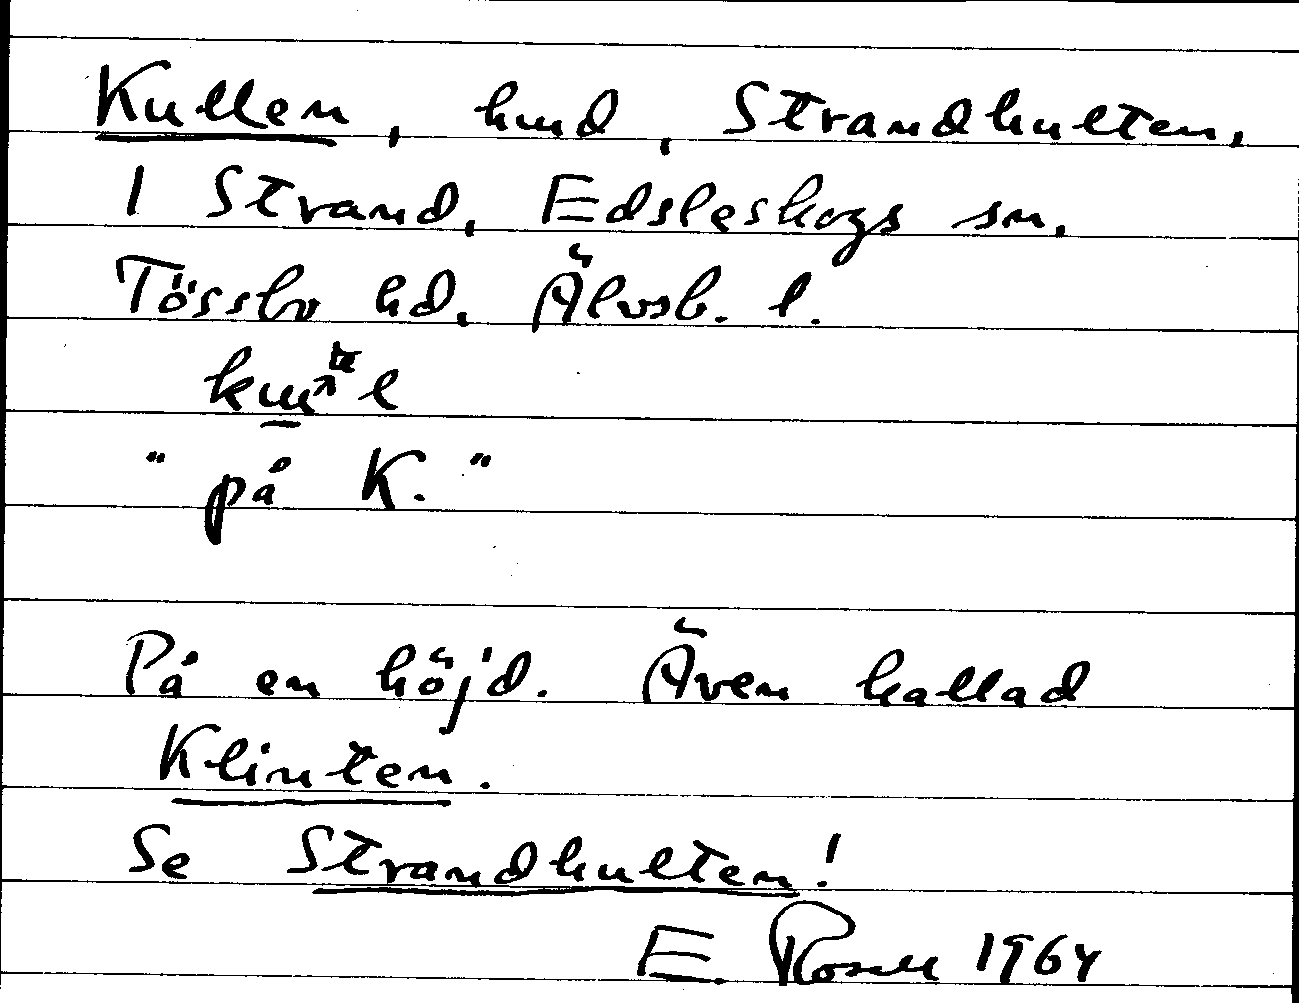 Kullen, hmd, Strandhulten,
1 Strand, Edsleskogs sn.
Tössbo hd. Älvsb. l.
"på K."
På en höjd. Även kallad
Klinten.
Se Strandhulten!
E. Rosell 1964